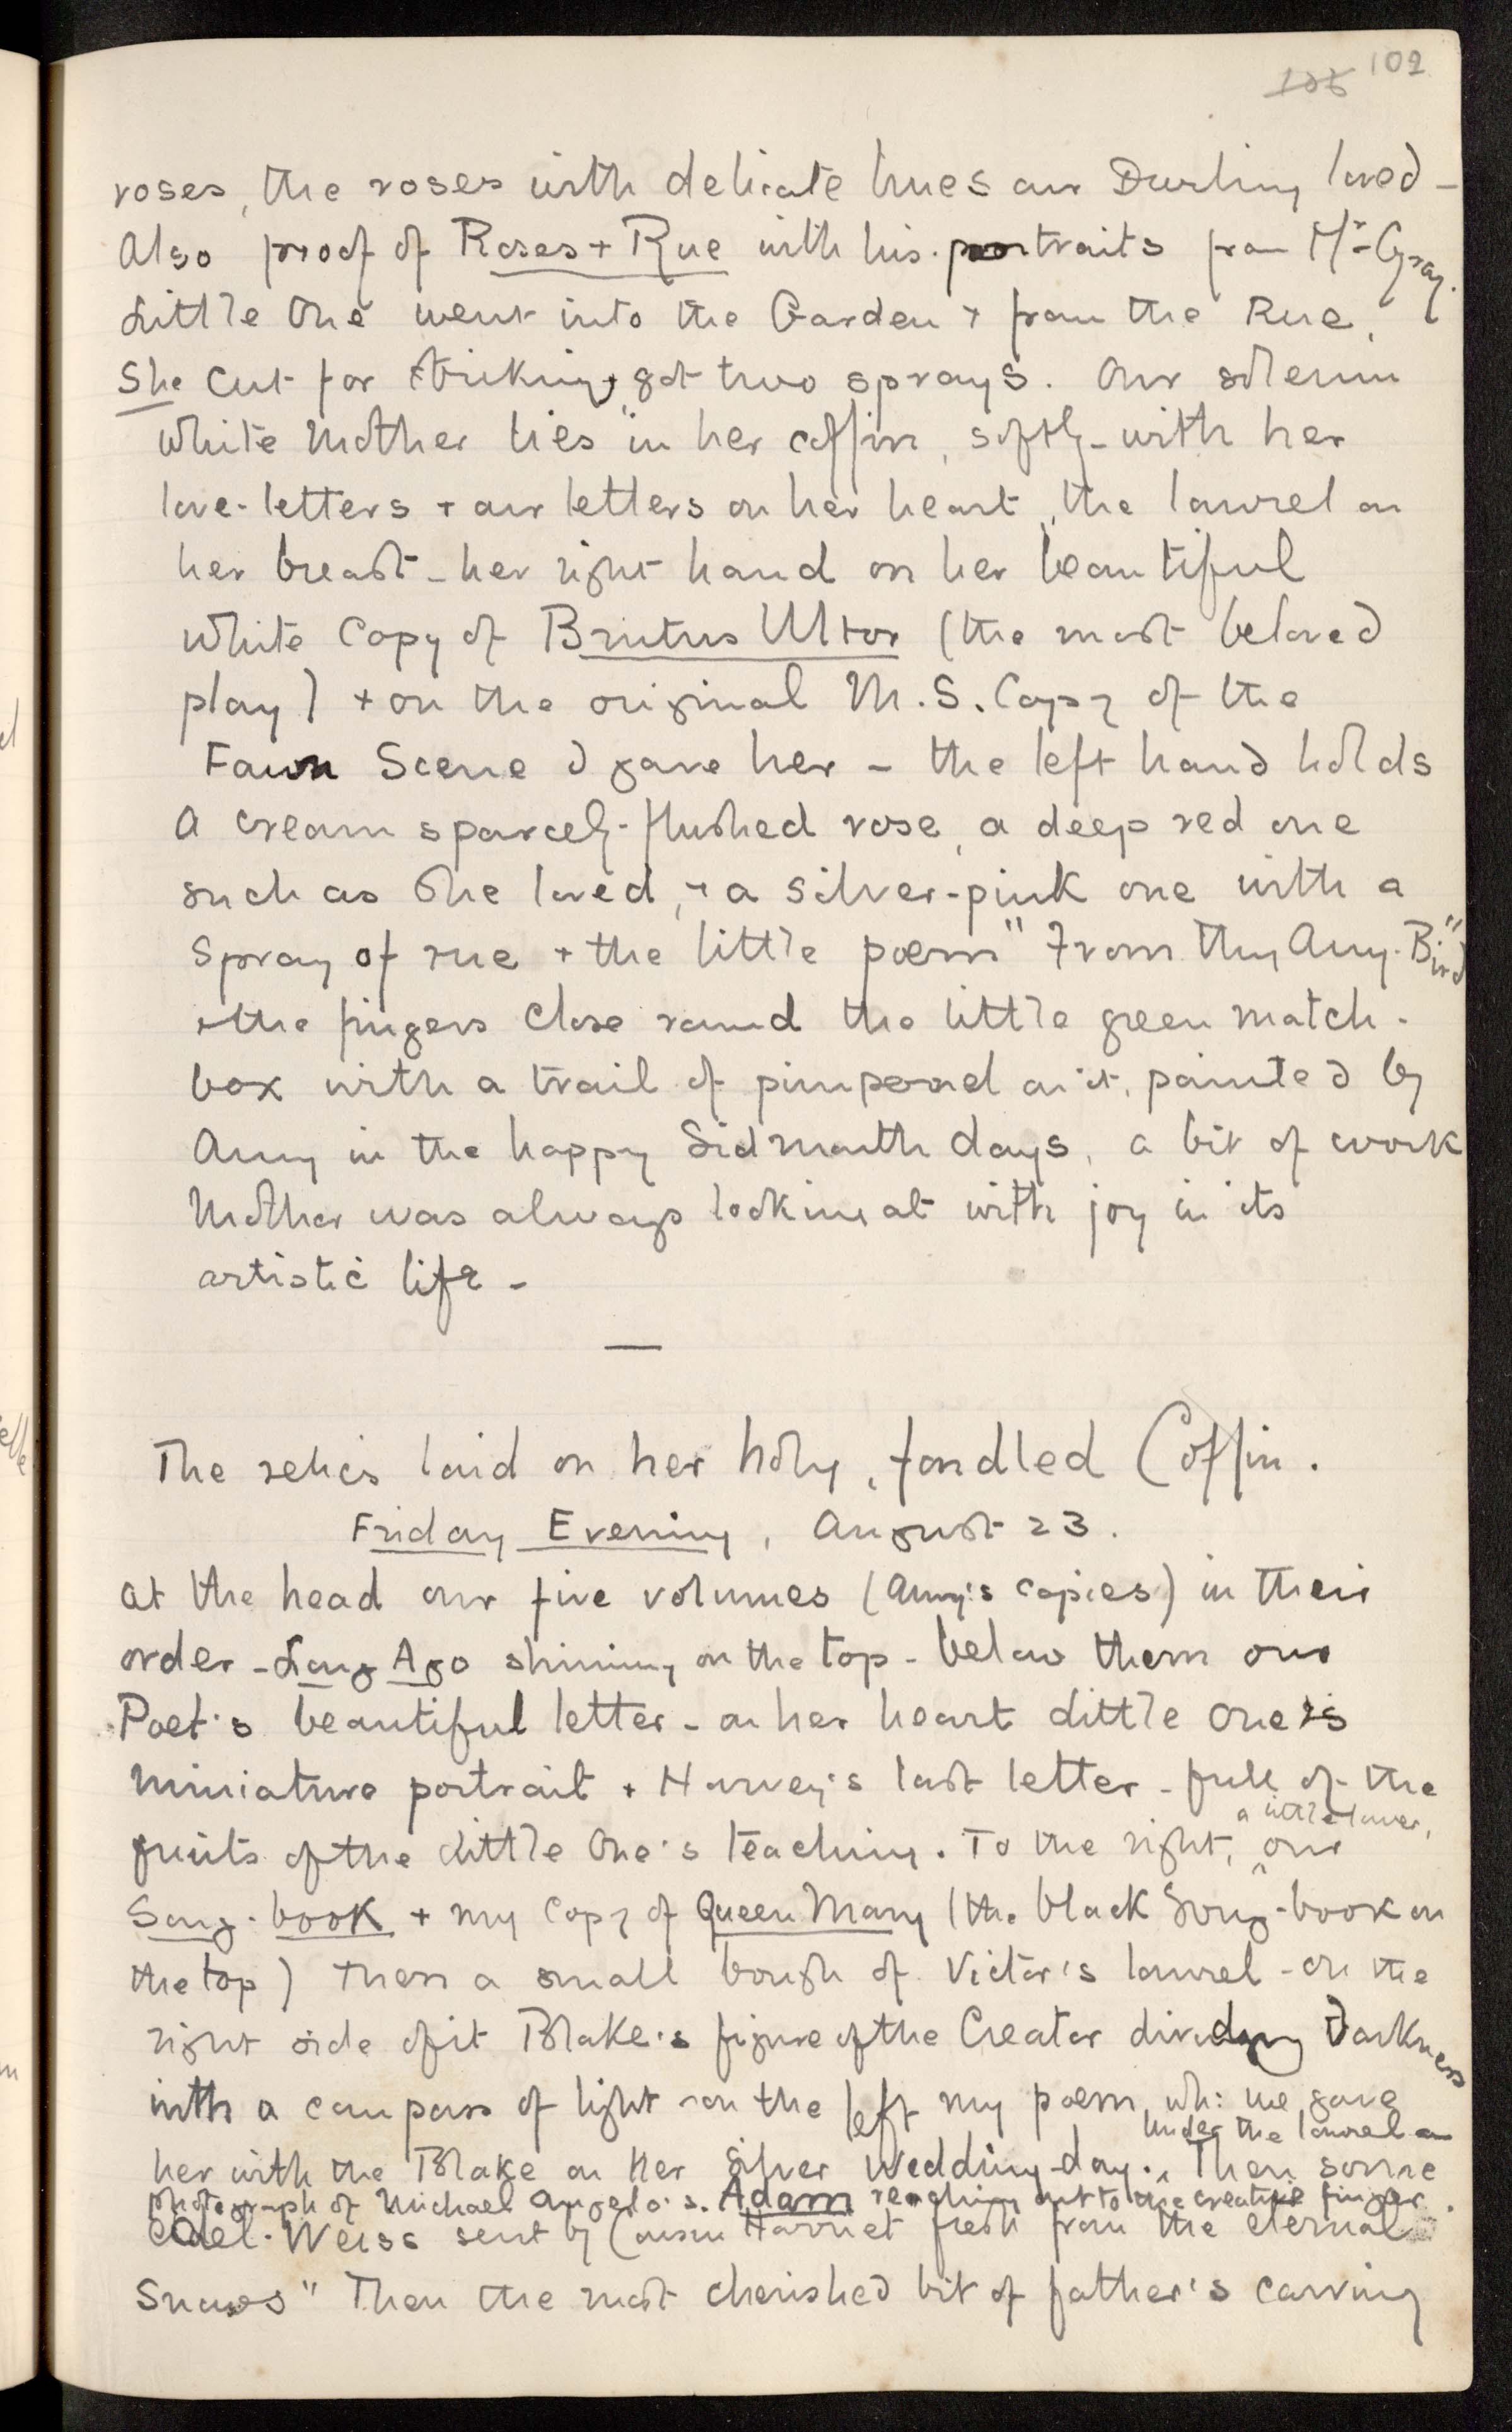 126 102
roses, the roses with delicate hues our Darling loved –
Also proof of Roses + Rue with his portraits from Mr. Gray.
Little One went into the Garden & from the Rue,
She cut for striking, got two sprays. Our solemn
White Mother lies in her coffin, softly – with her
love-letters + our letters on her heart, the laurel on
her breast – her right hand on her beautiful
white Copy of Brutus Ultor (the most beloved
play) + on the original M.S. Copy of the
Faun Scene I gave her – the left hand holds
a cream sparcely-flushed rose, a deep red one
such as she loved, + a silver-pink one with a
spray of rue + the little poem "From thy Amy-Bird"
+ the fingers close round the little green match-
box with a trail of pimpernel on it, painted by
Amy in the happy Sidmouth days, a bit of work
Mother was always looking at with joy in its
artistic life –
The relics laid on her holy, fondled Coffin.
Friday Evening, August 23.
At the head our five volumes (Amy's copies) in their
order – Long Ago shining on the top – below them our
Poet's beautiful letter – on her heart Little One's
miniature portrait + Harvey's last letter – full of the
fruits of the Little One's teaching. To the right, a little lower, our
Song-book + my Copy of Queen Mary (the black Song-book on
the top) Then a small bough of Victor's laurel – on the
right side of it Blake's figure of the Creator dividing Darkness
with a compass of light – on the left my poem, wh: we gave
her with the Blake on Her Silver Wedding-day. Under the laurel a
photograph of Michael Angelo's Adam reaching out to the creative finger.
Then some
Edel-Weiss sent by Cousin Harriet fresh from the eternal
Snows" Then the most cherished bit of father's carving